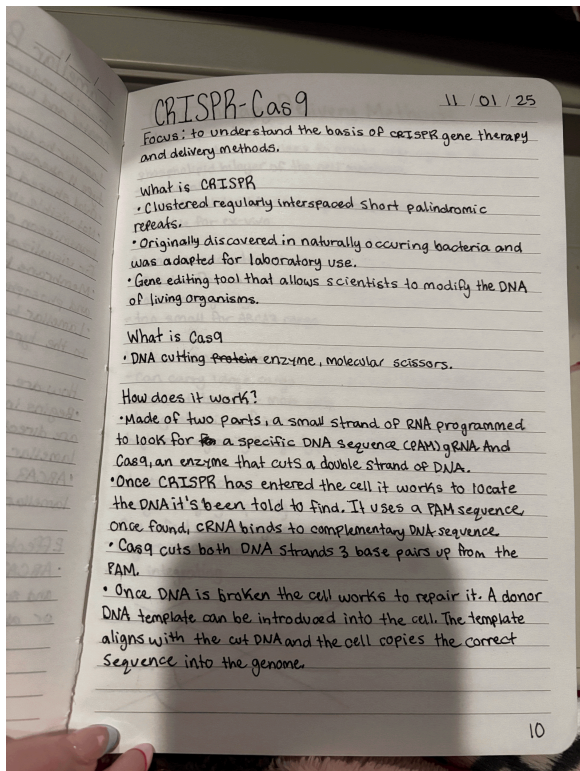 CRISPR-Cas9
11/01/25
Focus: to understand the basis of CRISPR gene therapy
and delivery methods.
What is CRISPR
• Clustered regularly interspaced short palindromic
repeats.
• Originally discovered in naturally occuring bacteria and
was adapted for laboratory use.
• Gene editing tool that allows scientists to modify the DNA
of living organisms.
What is Cas9
• DNA cutting protein enzyme, molecular scissors.
How does it work?
• Made of two parts, a small strand of RNA programmed
to look for a specific DNA sequence (PAM) gRNA. And
Cas9, an enzyme that cuts a double strand of DNA.
• Once CRISPR has entered the cell it works to locate
the DNA it's been told to find. It uses a PAM sequence,
once found, crRNA binds to complementary DNA sequence
• Cas9 cuts both DNA strands 3 base pairs up from the
PAM.
• Once DNA is broken the cell works to repair it. A donor
DNA template can be introduced into the cell. The template
aligns with the cut DNA and the cell copies the correct
sequence into the genome.
10